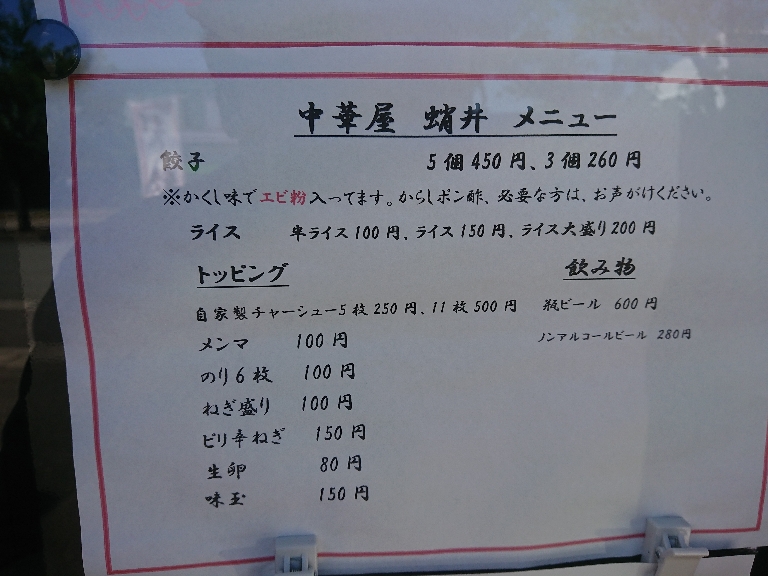 中華屋 蛸井 メニュー
餃子 5個450円、3個260円
※かくし味でエビ粉入ってます。からしポン酢、必要な方は、お声がけください。
ライス 半ライス100円、ライス150円、ライス大盛り200円
トッピング
自家製チャーシュー5枚250円、11枚500円
メンマ 100円
のり6枚 100円
ねぎ盛り 100円
ピリ辛ねぎ 150円
生卵 80円
味玉 150円
飲み物
瓶ビール 600円
ノンアルコールビール 280円